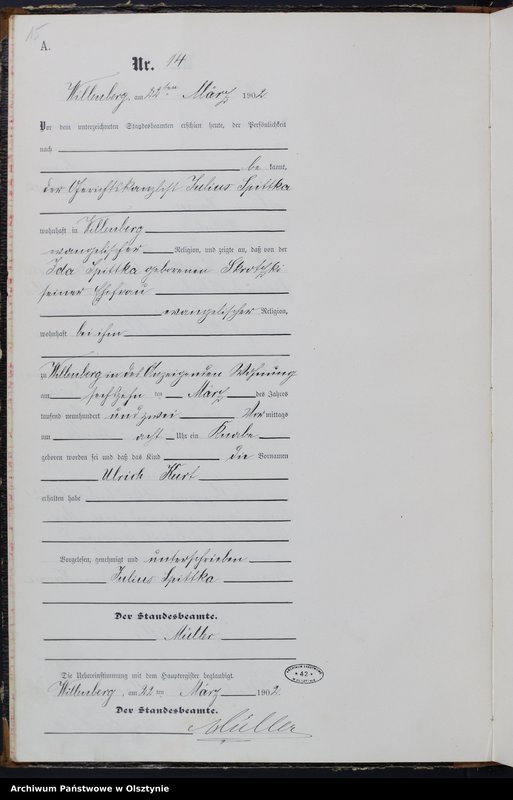 15
A.
Nr. 14
Willenberg, am 22ten März 1902
Vor dem unterzeichneten Standesbeamten erschien heute, der Persönlichkeit
nach
be kannt,
der Gerichtskanzlist Julius Spittka
wohnhaft in Willenberg
evangelischer Religion, und zeigte an, daß von der
Ida Spittka geborenen
seiner Ehefrau
evangelischer Religion,
wohnhaft bei ihm
zu Willenberg in des Anzeigenden Wohnung
am sechzehn ten März des Jahres
tausend neunhundert und zwei Vor mittags
um acht Uhr ein Knabe
geboren worden sei und daß das Kind die Vornamen
Ulrich Kurt
erhalten habe
Vorgelesen, genehmigt und unterschrieben
Julius Spittka
Der Standesbeamte.
Müller
Die Uebereinstimmung mit dem Hauptregister beglaubigt.
Willenberg, am 22 ten März 1902.
Der Standesbeamte.
Müller
42
Archiwum Państwowe w Olsztynie